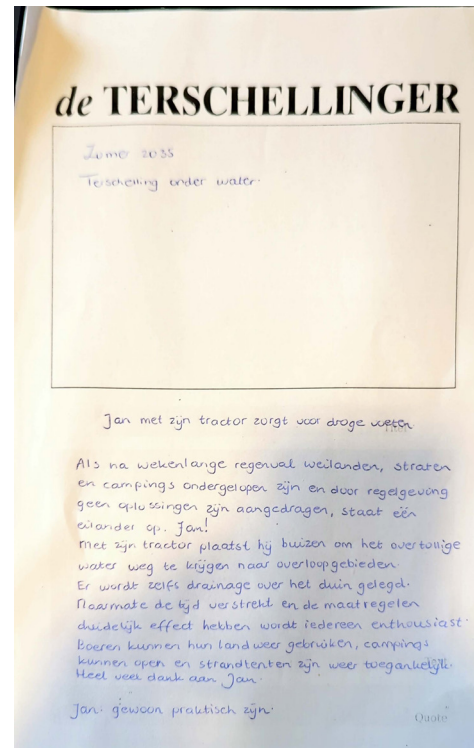 de TERSCHELLINGER
Zomer 2035
Terschelling onder water.
Jan met zijn tractor zorgt voor droge voeten
Als na wekenlange regenval weilanden, straten
en campings ondergelopen zijn en door regelgeving
geen oplossingen zijn aangedragen, staat één
eilander op. Jan!
Met zijn tractor plaatst hij buizen om het overtollige
water weg te krijgen naar overloopgebieden.
Er wordt zelfs drainage over het duin gelegd.
Naarmate de tijd verstrekt en de maatregelen
duidelijk effect hebben wordt iedereen enthousiast.
Boeren kunnen hun land weer gebruiken, campings
kunnen open en strandtenten zijn weer toegankelijk.
Heel veel dank aan Jan.
Jan: gewoon praktisch zijn.
Quote